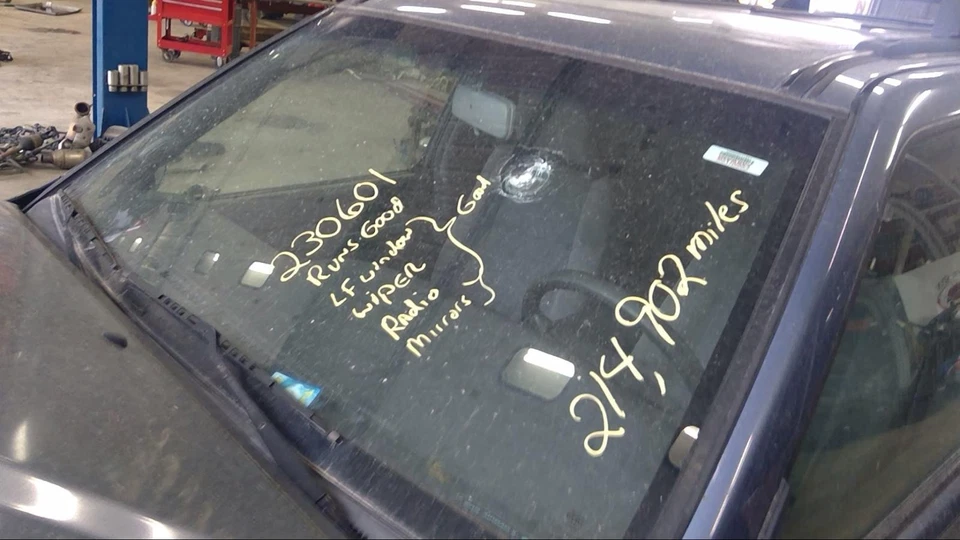 230601
Runs Good
LF window
wiPER
Radio
Mirrors
Good
214,902 miles